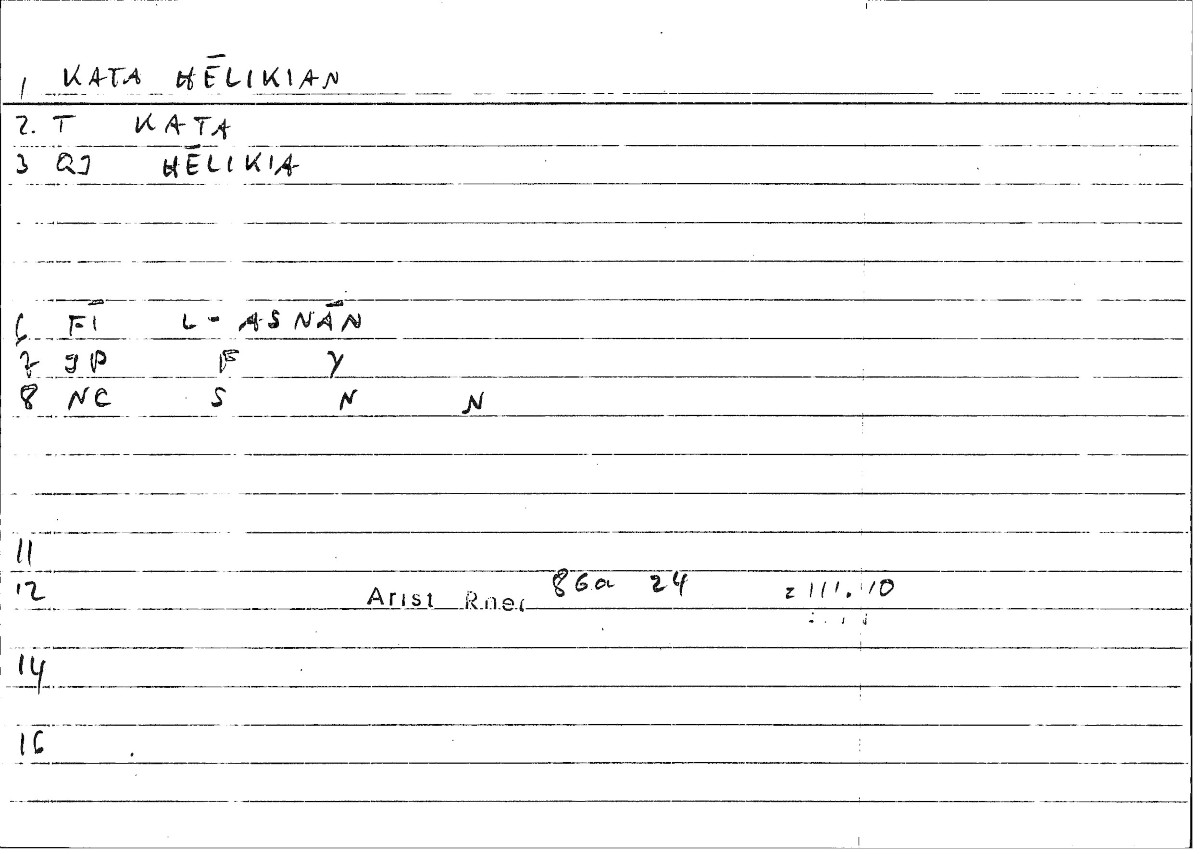 1 KATA HĒLIKIAN
2. T KATA
3 QJ HĒLIKIA
6 FĪ L-ASNĀN
7 JP F Y
8 NC S N N
11
12 Arist Rhet 86a 24 = 111.10
14
16